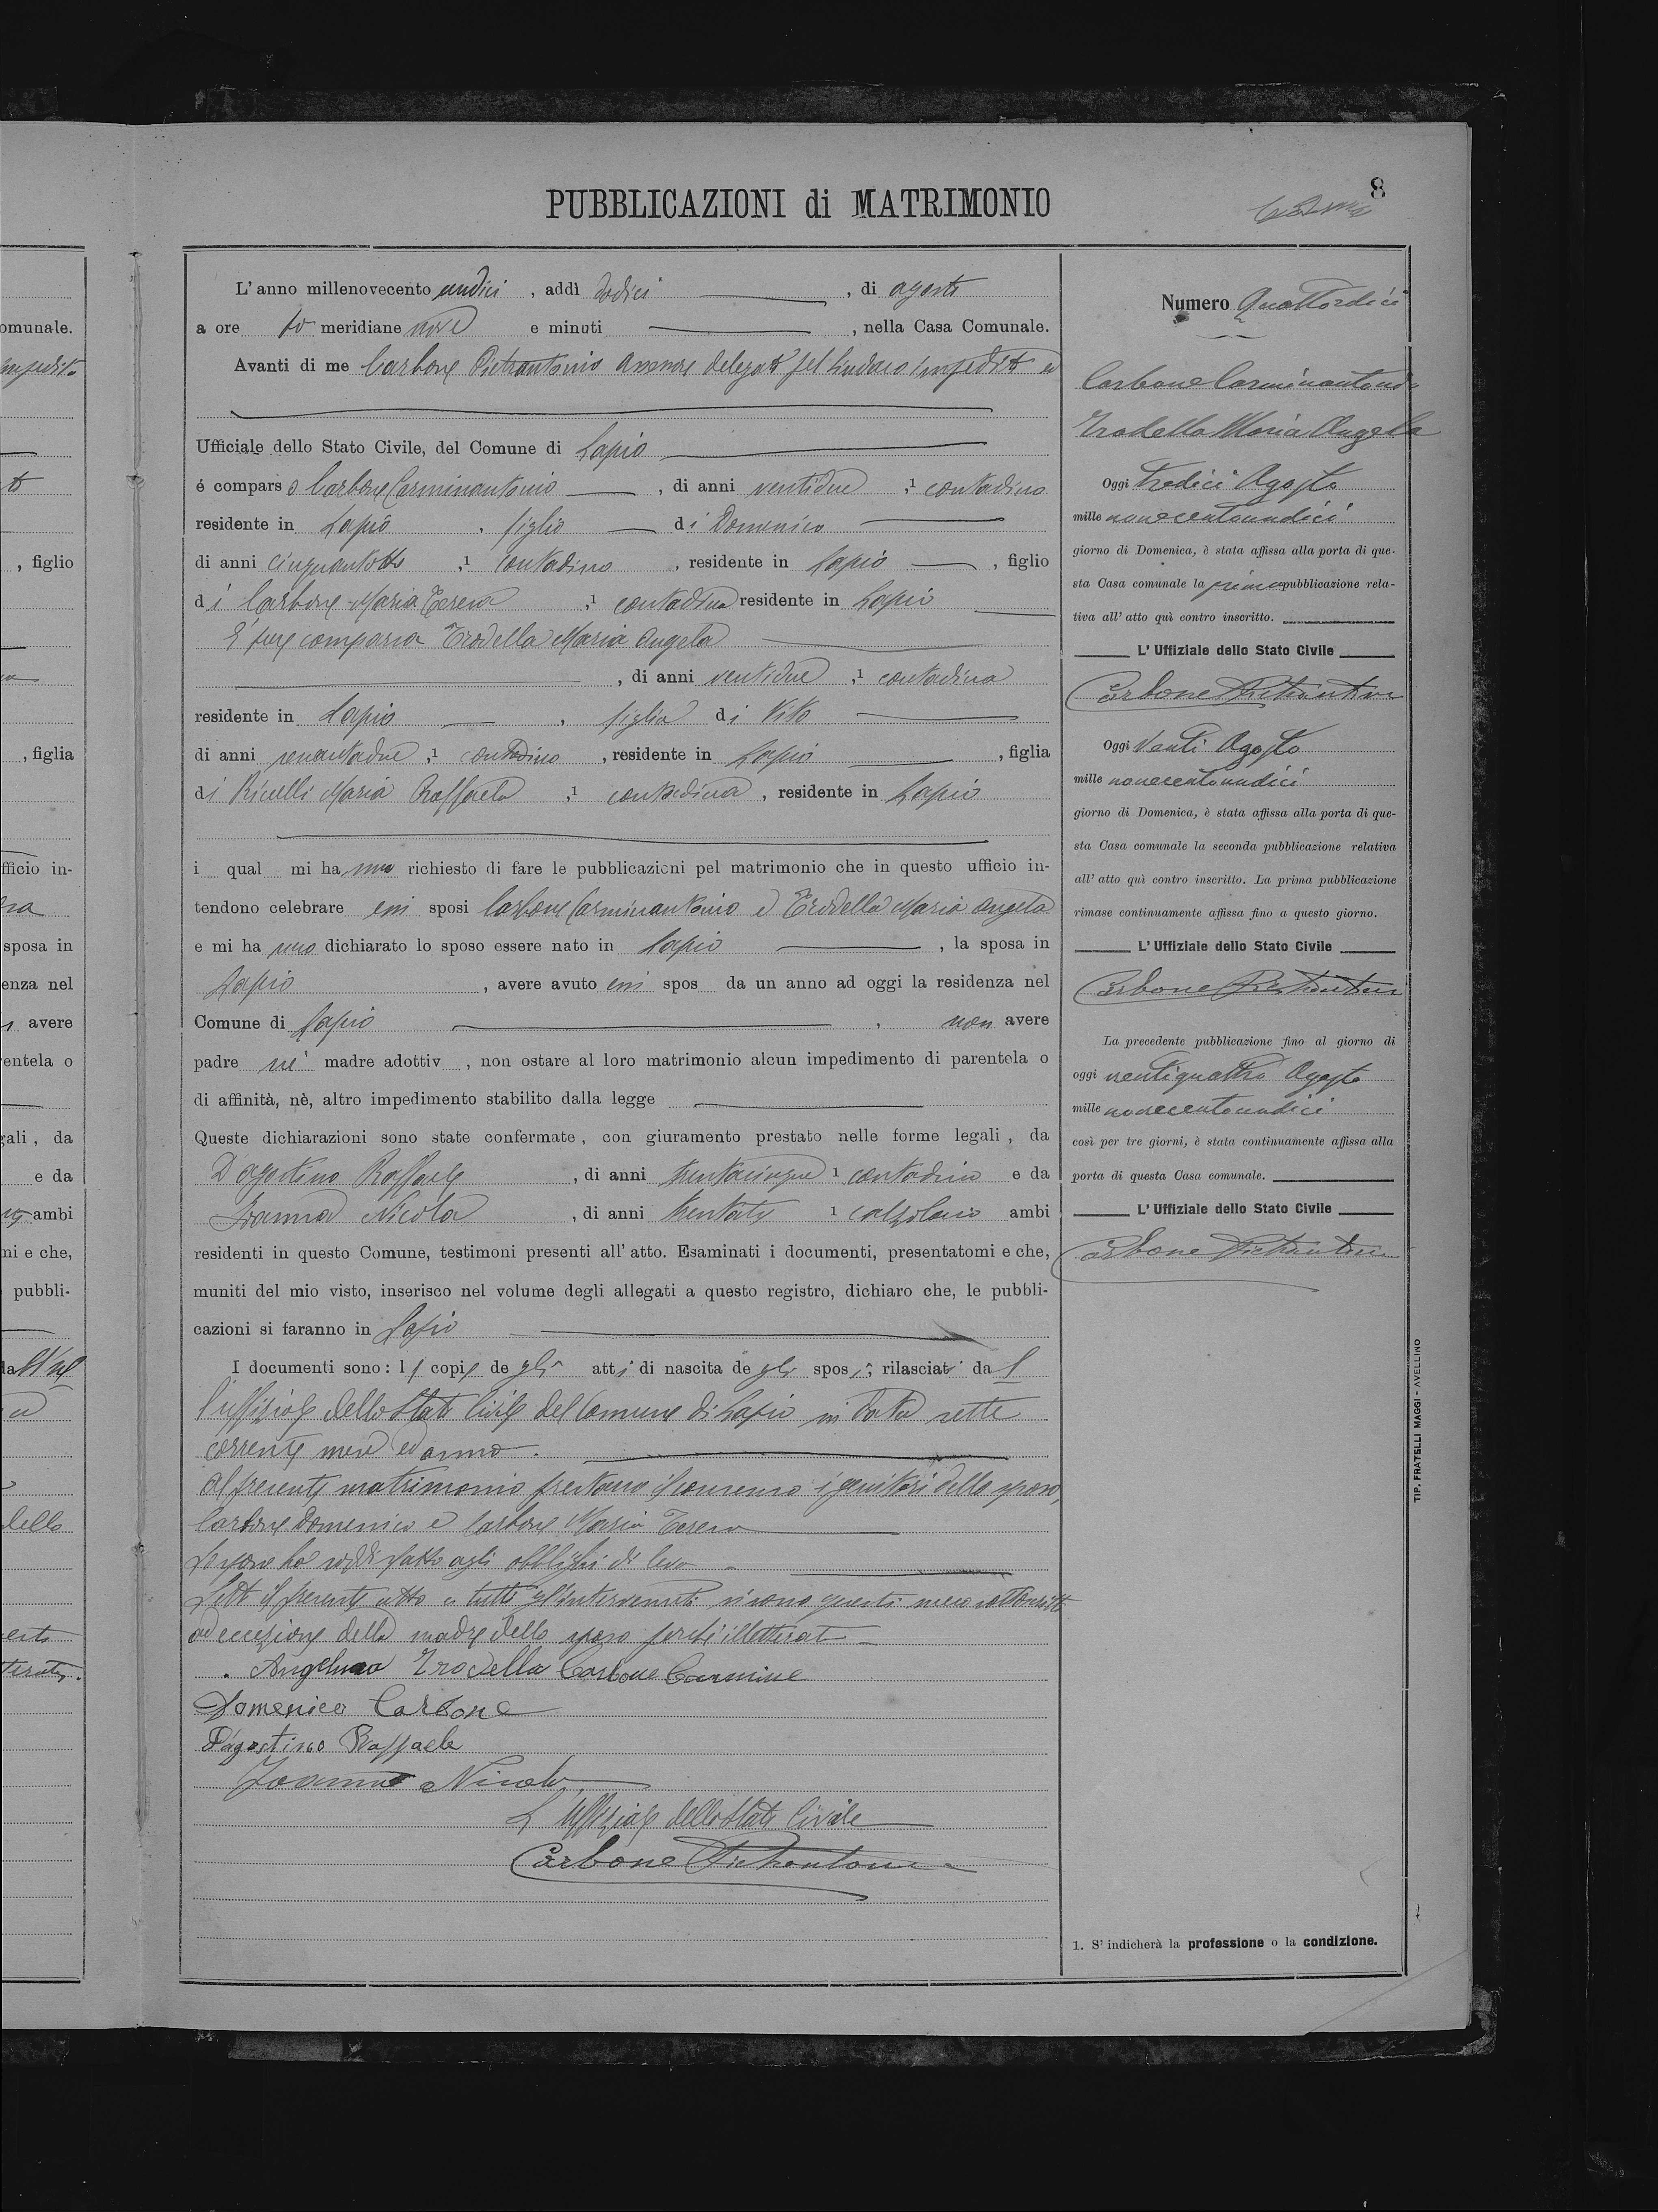 8
PUBBLICAZIONI di MATRIMONIO
L'anno millenovecento undici, addì dodici, di agosto
a ore meridiane nove e minuti, nella Casa Comunale.
Avanti di me Carbone Pietrantonio Assessore delegato pel Sindaco impedito
Ufficiale dello Stato Civile, del Comune di Lapio
é comparso Carbone Carminantonio, di anni ventidue, 1 contadino
residente in Lapio, figlio di Domenico
di anni cinquantotto, 1 contadino, residente in Lapio, figlio
di Carbone Maria Teresa, 1 contadina residente in Lapio
E' pure comparsa Trodella Maria Angela
, di anni ventidue, 1 contadina
residente in Lapio, figlia di Vito
di anni sessantadue, 1 contadino, residente in Lapio, figlia
di Maria Raffaela, 1 contadina, residente in Lapio
i qual mi hanno richiesto di fare le pubblicazioni pel matrimonio che in questo ufficio in-
tendono celebrare essi sposi Carbone Carminantonio e Trodella Maria Angela
e mi hanno dichiarato lo sposo essere nato in Lapio, la sposa in
Lapio, avere avuto essi spos da un anno ad oggi la residenza nel
Comune di Lapio, non avere
padre nè madre adottiv , non ostare al loro matrimonio alcun impedimento di parentela o
di affinità, nè, altro impedimento stabilito dalla legge
Queste dichiarazioni sono state confermate, con giuramento prestato nelle forme legali, da
D'agostino Raffaele, di anni trentacinque 1 contadino e da
Ioanna Nicola, di anni trentatre 1 calzolaio ambi
residenti in questo Comune, testimoni presenti all'atto. Esaminati i documenti, presentatomi e che,
muniti del mio visto, inserisco nel volume degli allegati a questo registro, dichiaro che, le pubbli-
cazioni si faranno in Lapio
I documenti sono: le copie degli atti di nascita degli sposi, rilasciati dal
l'uffiziale dello Stato Civile del Comune di Lapio in data sette
corrente mese ed anno.
Al presente matrimonio prestano il consenso i genitori dello sposo,
Carbone Domenico e Carbone Maria Teresa
Lo sposo ha soddisfatto agli obblighi di leva
Letto il presente atto a tutti gl'intervenuti si sono questi meco sottoscritti
ad eccezione della madre dello sposo perchè illetterata
Angelina Trodella Carbone Carmine
Domenico Carbone
D'agostino Raffaele
Ioanna Nicola
L'uffiziale dello Stato Civile
Carbone Pietrantonio
Numero Quattordici
Carbone Carminantonio
Trodella Maria Angela
Oggi tredici Agosto
mille novecentoundici
giorno di Domenica, è stata affissa alla porta di que-
sta Casa comunale la prima pubblicazione rela-
tiva all'atto quì contro inscritto.
L'Uffiziale dello Stato Civile
Carbone Pietrantonio
Oggi Venti Agosto
mille novecentoundici
giorno di Domenica, è stata affissa alla porta di que-
sta Casa comunale la seconda pubblicazione relativa
all'atto quì contro inscritto. La prima pubblicazione
rimase continuamente affissa fino a questo giorno.
L'Uffiziale dello Stato Civile
Carbone Pietrantonio
La precedente pubblicazione fino al giorno di
oggi ventiquattro Agosto
mille novecentoundici
così per tre giorni, è stata continuamente affissa alla
porta di questa Casa comunale.
L'Uffiziale dello Stato Civile
Carbone Pietrantonio
1. S'indicherà la professione o la condizione.
TIP. FRATELLI MAGGI - AVELLINO
omunale.
, figlio
, figlia
fficio in-
sposa in
enza nel
avere
entela o
gali, da
e da
ambi
ni e che,
pubbli-